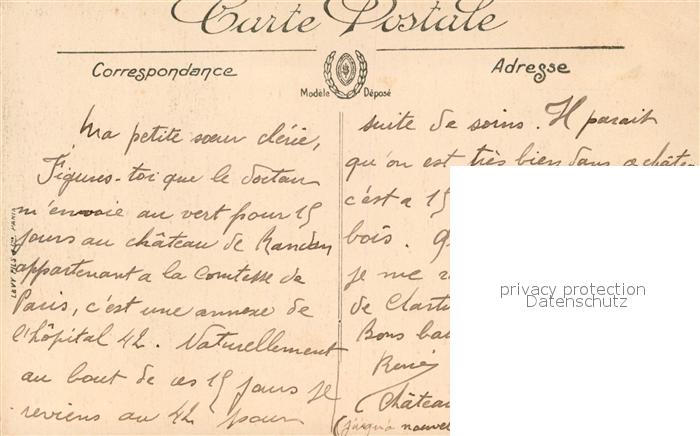 Carte Postale
Correspondance
Adresse
Modèle Déposé
LEVY FILS & Cie PARIS
Ma petite sœur chérie,
Figures-toi que le docteur
m'envoie au vert pour 15
jours au château de Randan
appartenant a la Comtesse de
Paris, c'est une annexe de
l'hôpital 42. Naturellement
au bout de ces 15 jours je
reviens au 42 pour
suite de soins. Il parait
qu'on est très bien dans ce châte
c'est a 15
bois.
je me
de
Bons bai
René
Château
(jusqu'à nouvel
privacy protection
Datenschutz